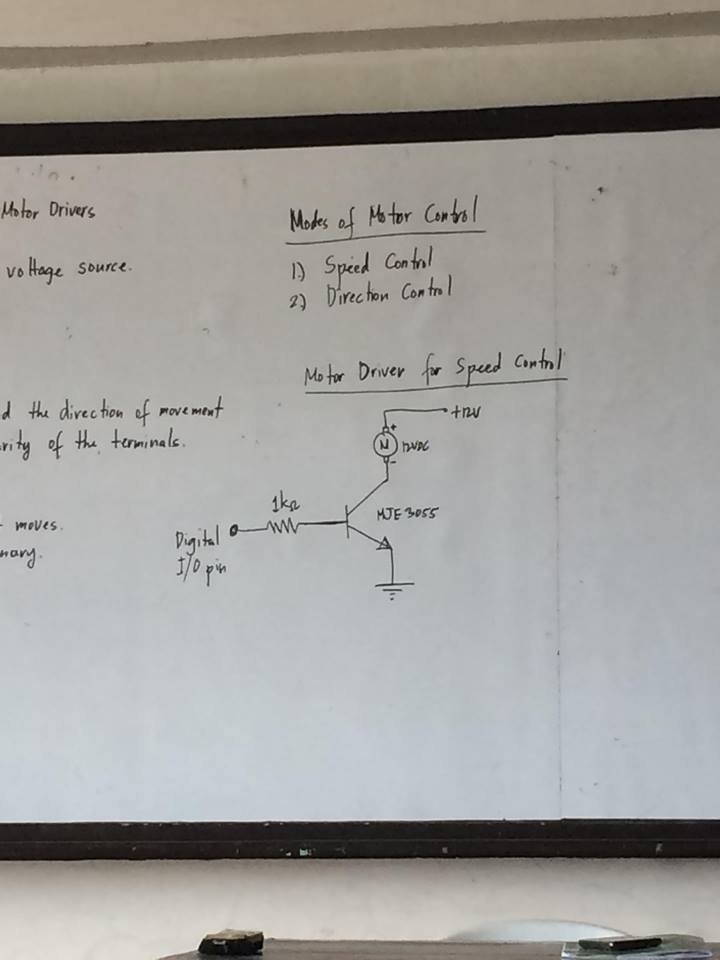 Motor Drivers
voltage source.
d the direction of movement
rity of the terminals.
moves.
nary.
Modes of Motor Control
1.) Speed Control
2.) Direction Control
Motor Driver for Speed Control
+12V
+
M
12VDC
-
1kΩ
MJE3055
Digital
I/O pin